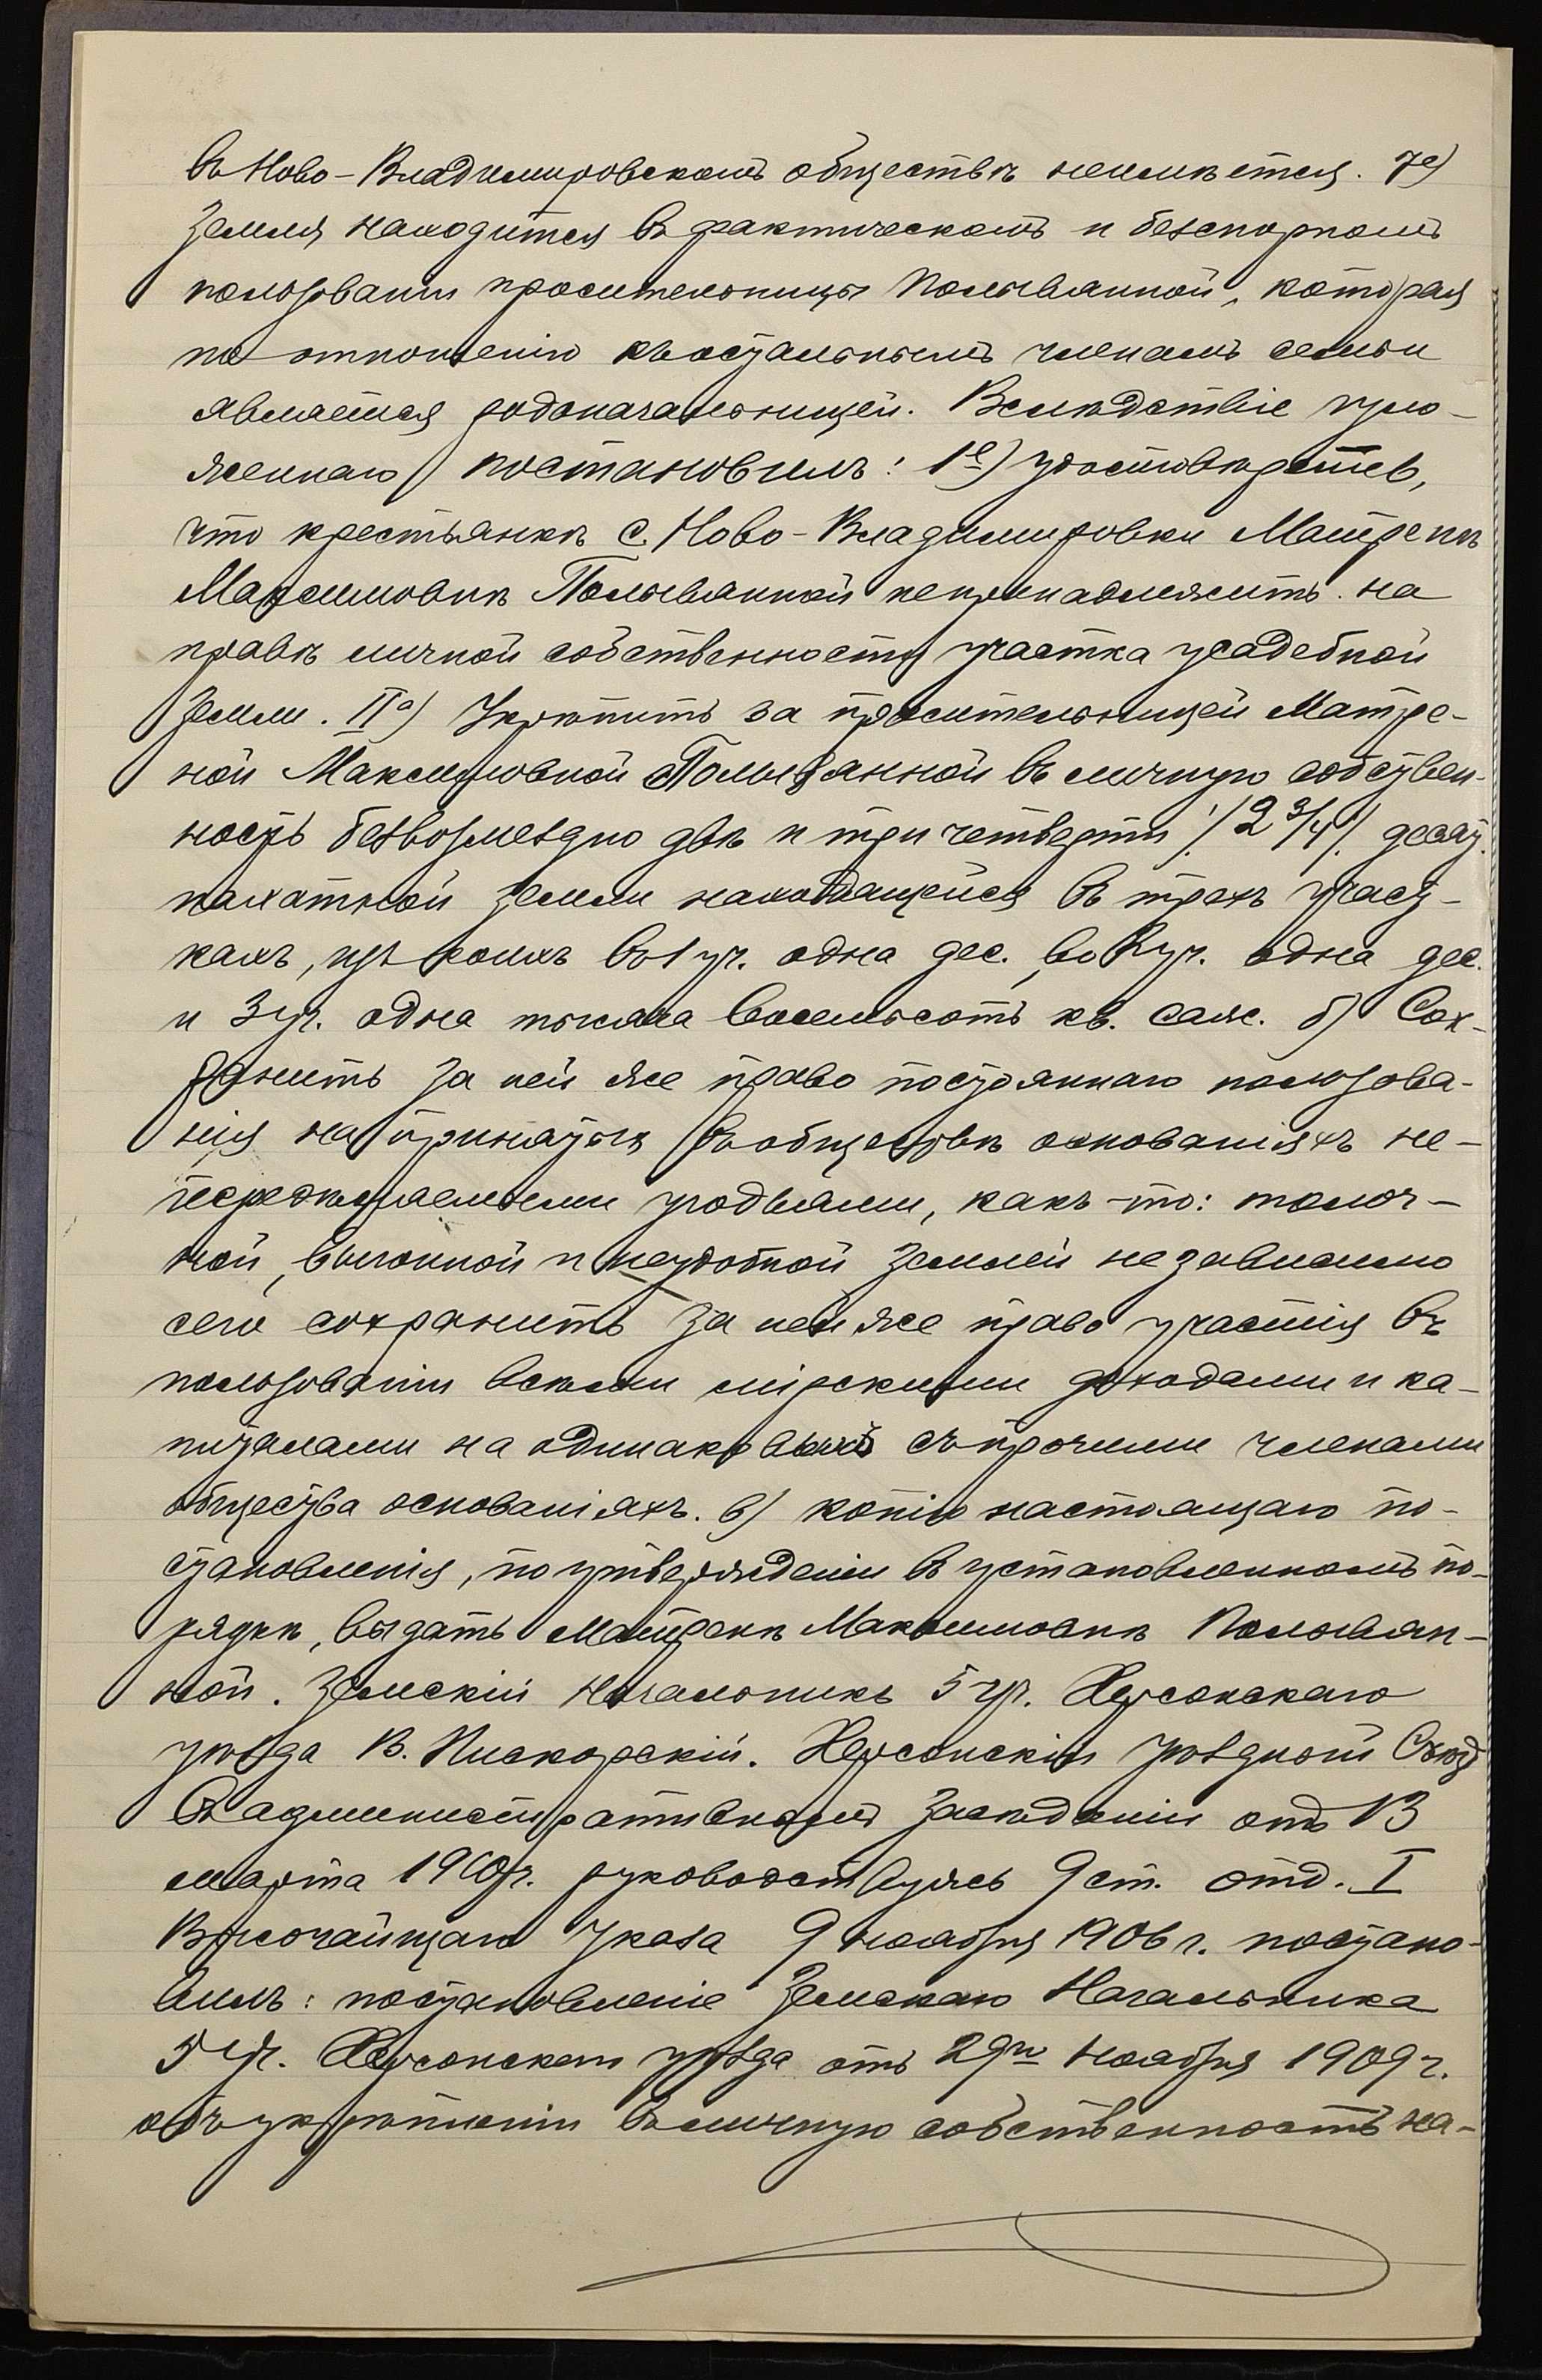 въ Ново-Владимировскомъ обществѣ неимѣется. 7е)
Земля находится въ фактическомъ и безспорномъ
пользованіи просительницы Полыванной, которая
по отношенію къ остальнымъ членамъ семьи
является родоначальницей. Вслѣдствіе изло-
женнаго постановилъ: 1е) удостовѣрить,
что крестьянкѣ с. Ново-Владимировки Матренѣ
Максимовнѣ Полыванной непринадлежитъ на
правѣ личной собственности участка усадебной
земли. IIа) Укрѣпить за просительницей Матре-
ной Максимовной Полыванной въ личную собствен-
ность безвозмездно двѣ и три четверти /2 3/4/ десят.
пахатной земли находящейся въ трехъ участ-
кахъ, изъ коихъ въ 1 уч. одна дес., во 2 уч. одна дес.
и 3 уч. одна тысяча восемьсотъ кв. саж. б) Сох-
ранить за ней же право постояннаго пользова-
нія на принятыхъ въ обществѣ основаніяхъ не-
передѣляемыми угодьями, какъ-то: толоч-
ной, выгонной и неудобной землей независимо
сего сохранить за ней же право участія въ
пользованіи всѣми мірскими доходами и ка-
питалами на одинаковыхъ съ прочими членами
общества основаніяхъ. в) копію настоящаго по-
становленія, по утвержденіи въ установленномъ по-
рядкѣ, выдать Матренѣ Максимовнѣ Полыван-
ной. Земскій Начальникъ 5 уч. Херсонскаго
уѣзда В. Пискорскій. Херсонскій Уѣздный Съѣздъ
въ административномъ засѣданіи отъ 13
марта 1910 г. руководствуясь 9 ст. отд. I
Высочайшаго Указа 9 ноября 1906 г. постано-
вилъ: постановленіе Земскаго Начальника
5 уч. Херсонскаго уѣзда отъ 29го ноября 1909 г.
объ укрѣпленіи въ личную собственность на-